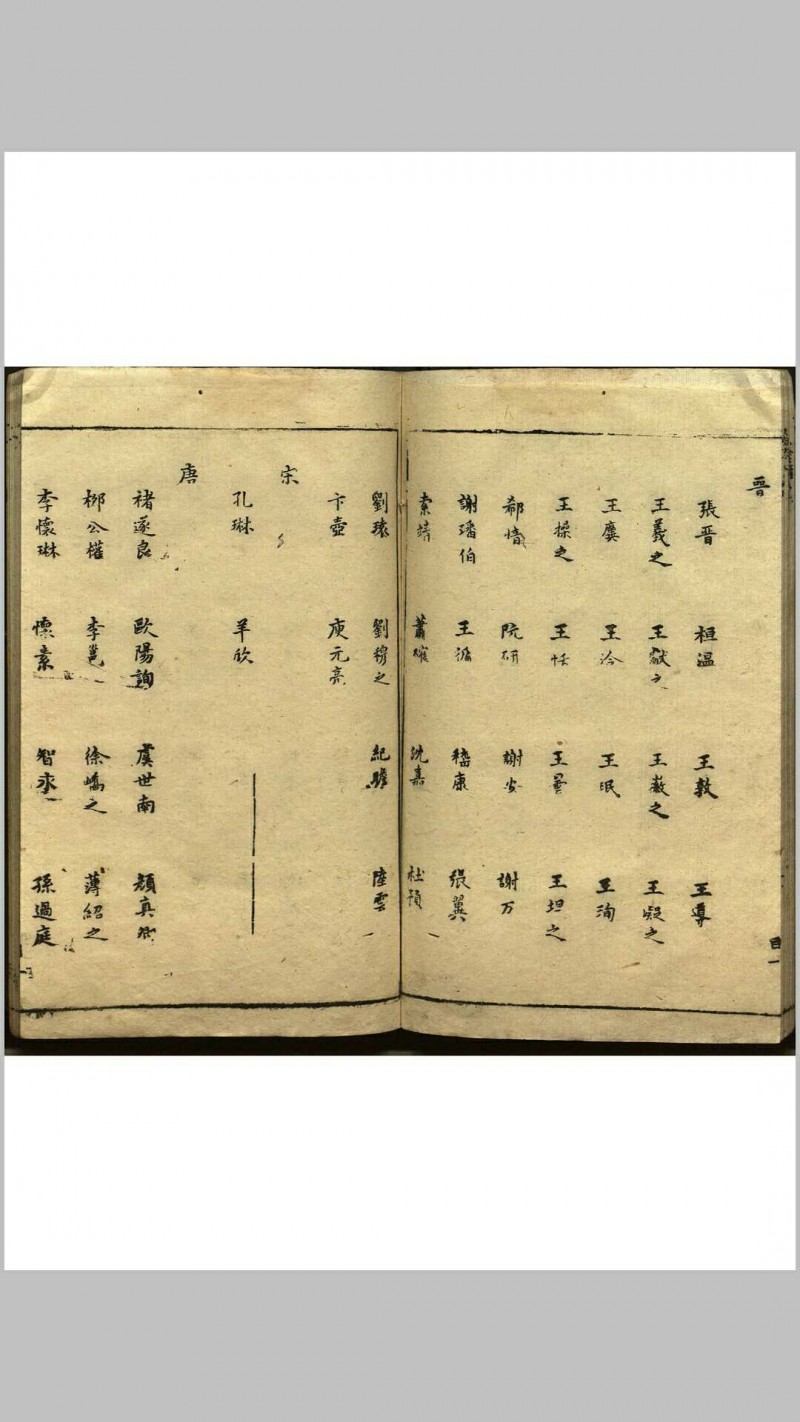 晋
張晋 桓温 王敦 王導
王羲之 王獻之 王薇之 王凝之
王廙 王洽 王珉 王洵
王操之 王恬 王曇 王坦之
郗愔 阮研 謝安 謝万
謝璠伯 王循 嵇康 張翼
索靖 蕭確 沈嘉 杜預
劉瓌 劉穆之 紀瞻 陸雲
卞壺 庾元亮
宋
孔琳 羊欣
唐
褚遂良 歐陽詢 虞世南 顔真卿
柳公權 李邕 徐嶠之 薄紹之
李懷琳 懷素 智永 孫過庭